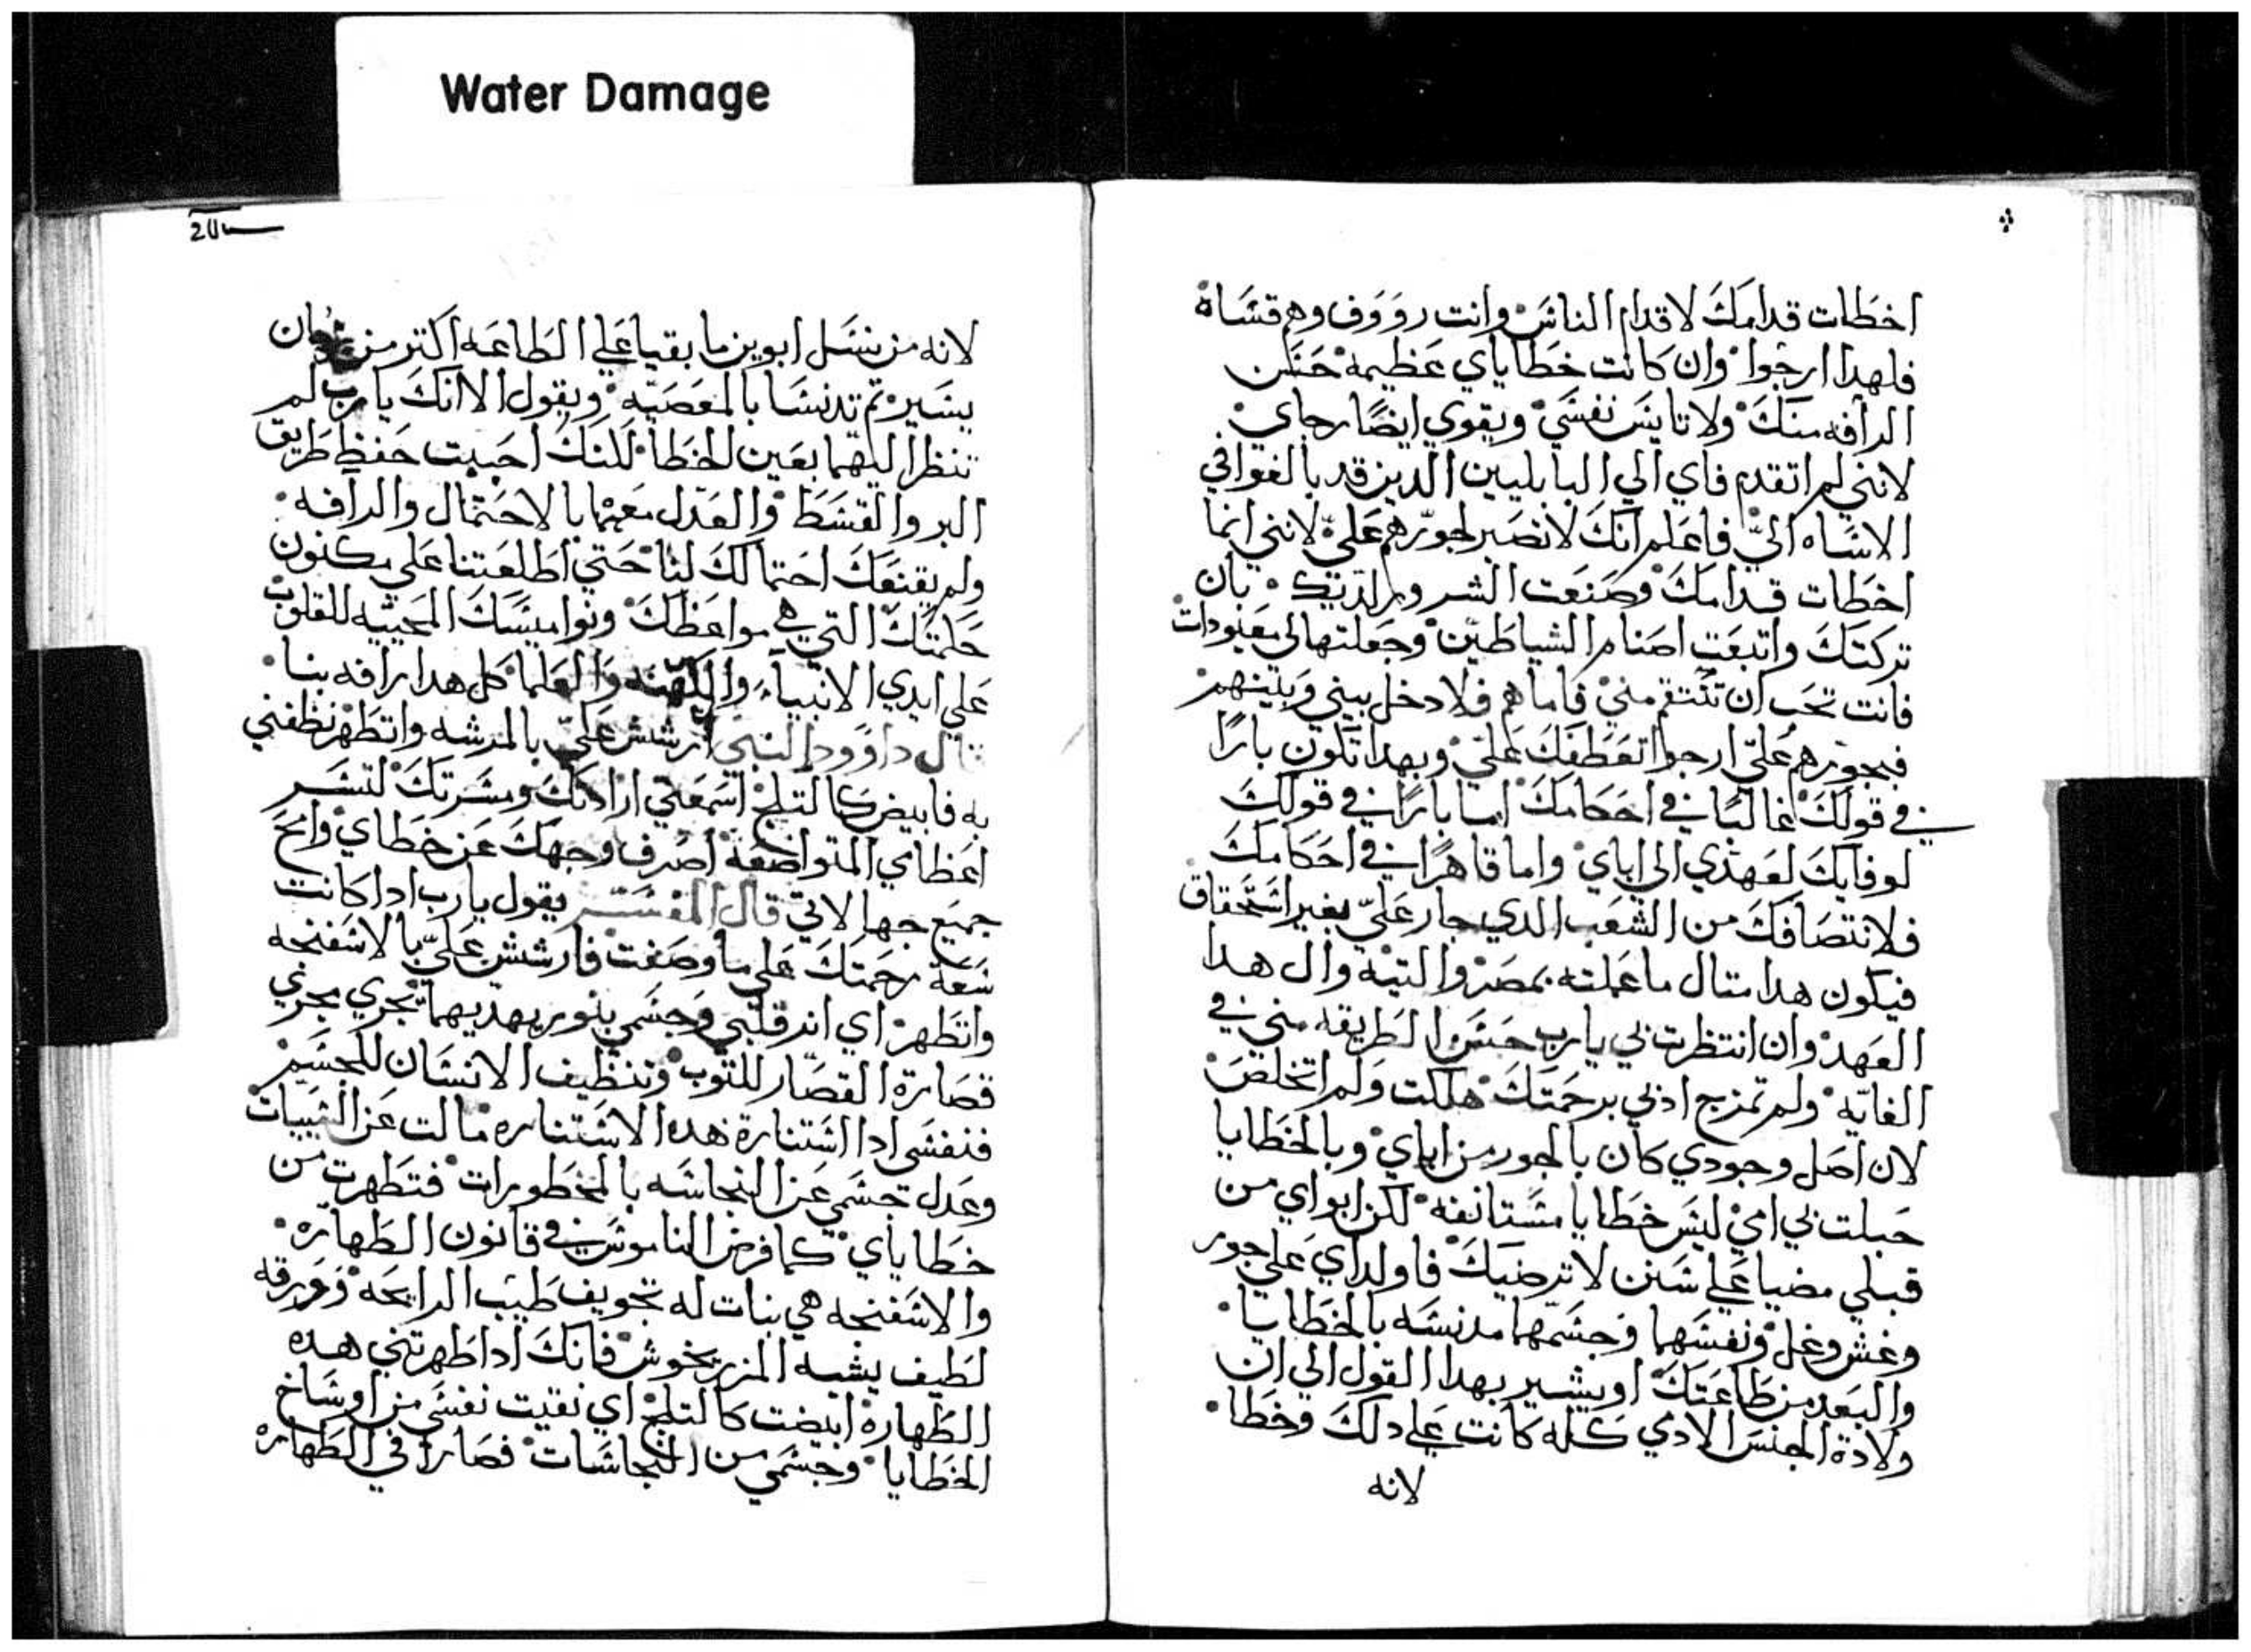 Water Damage
اخطات قدامك لاقدام الناس وانت رووف وهم قساه
فلهدا ارجوا وان كانت خطاياي عظيمة حسن
الرافه منك ولا تايس نفسي ويقوي ايضًا رجاي
لانني لم اتقدم فاي الي البابليين الدين قد بالغوا في
الاساه اليّ فاعلم انك لا تصبر لجورهم عليّ لانني انما
اخطات قدامك وصنعت الشر ولديك بان
تركتك واتبعت اصنام الشياطين وجعلتها لي معبودات
فانت تحب ان تنتقم مني فاما هم فلا دخل بيني وبينهم
فبجورهم عليّ ارجوا تعطفك عليّ وبهدا تكون بارًا
في قولك غالبًا في احكامك اما بارًا في قولك
لوفايك لعهدي الي اباي واما قاهرًا في احكامك
فلانتصافك من الشعب الدي جار عليّ بغير استحقاق
فيكون هدا متال ما عملته بمصر والتيه وال هدا
العهد وان انتظرت بي يارب حسن الطريقه مني في
الغايه ولم تمزج ادبي برحمتك هلكت ولم اتخلص
لان اصل وجودي كان بالجور من اباي وبالخطايا
حبلت بي امي ليس خطايا مستانفه لكن ابواي من
قبلي مضيا علي سنن لا ترضيك فاولداي علي جور
وغش وغل ونفسهما وجسمهما مدنسه بالخطايا
والبعد من طاعتك او يشير بهدا القول الي ان
ولادة الجنس الادمي كله كانت علي دلك وخطا
لانه
لانه من نسل ابوين ما بقيا علي الطاعه اكتر من زمان
يسير تم تدنسا بالمعصيه ويقول الا انك يارب لم
تنظر اليهما بعين الخطا لكنك احببت حفظ طريق
البر والقسط والعدل معهما بالاحتمال والرافه
ولم يقنعك احتمالك لنا حتي اطلعتنا علي مكنون
حكمتك التي هي مواعظك ونواميسك المحييه للقلوب
علي ايدي الانبياء والكهنه والعلما كل هدا رافه بنا
قال داوود النبي ارشش عليّ بالمرشه واتطهر نظفني
به فابيض كالتلج اسمعني ارادتك ومسرتك لتسر
اعظاي المتواضعة اصرف وجهك عن خطاي وامح
جميع جهالاتي قال المفسر يقول يارب ادا كانت
سعة رحمتك علي ما وصفت فارشش عليّ بالاسفنجه
واتطهر اي اندر قلبي وجسمي بنور يهديهما يجري مجري
قصارة القصار للتوب وتنظيف الانسان للجسم
فنفسي ادا استنارة هده الاستناره مالت عن السيات
وعدل جسمي عن النجاسه بالمخطورات فتطهرت من
خطاياي كما فرض الناموس في قانون الطهاره
والاسفنجه هي نبات له تجويف طيب الرايحه وورقه
لطيف يشبه المزرنخوش فانك ادا طهرتني هده
الطهارة ابيضت كالتلج اي نقيت نفسي من اوساخ
الخطايا وجسمي من النجاسات فصارا في الطهاره